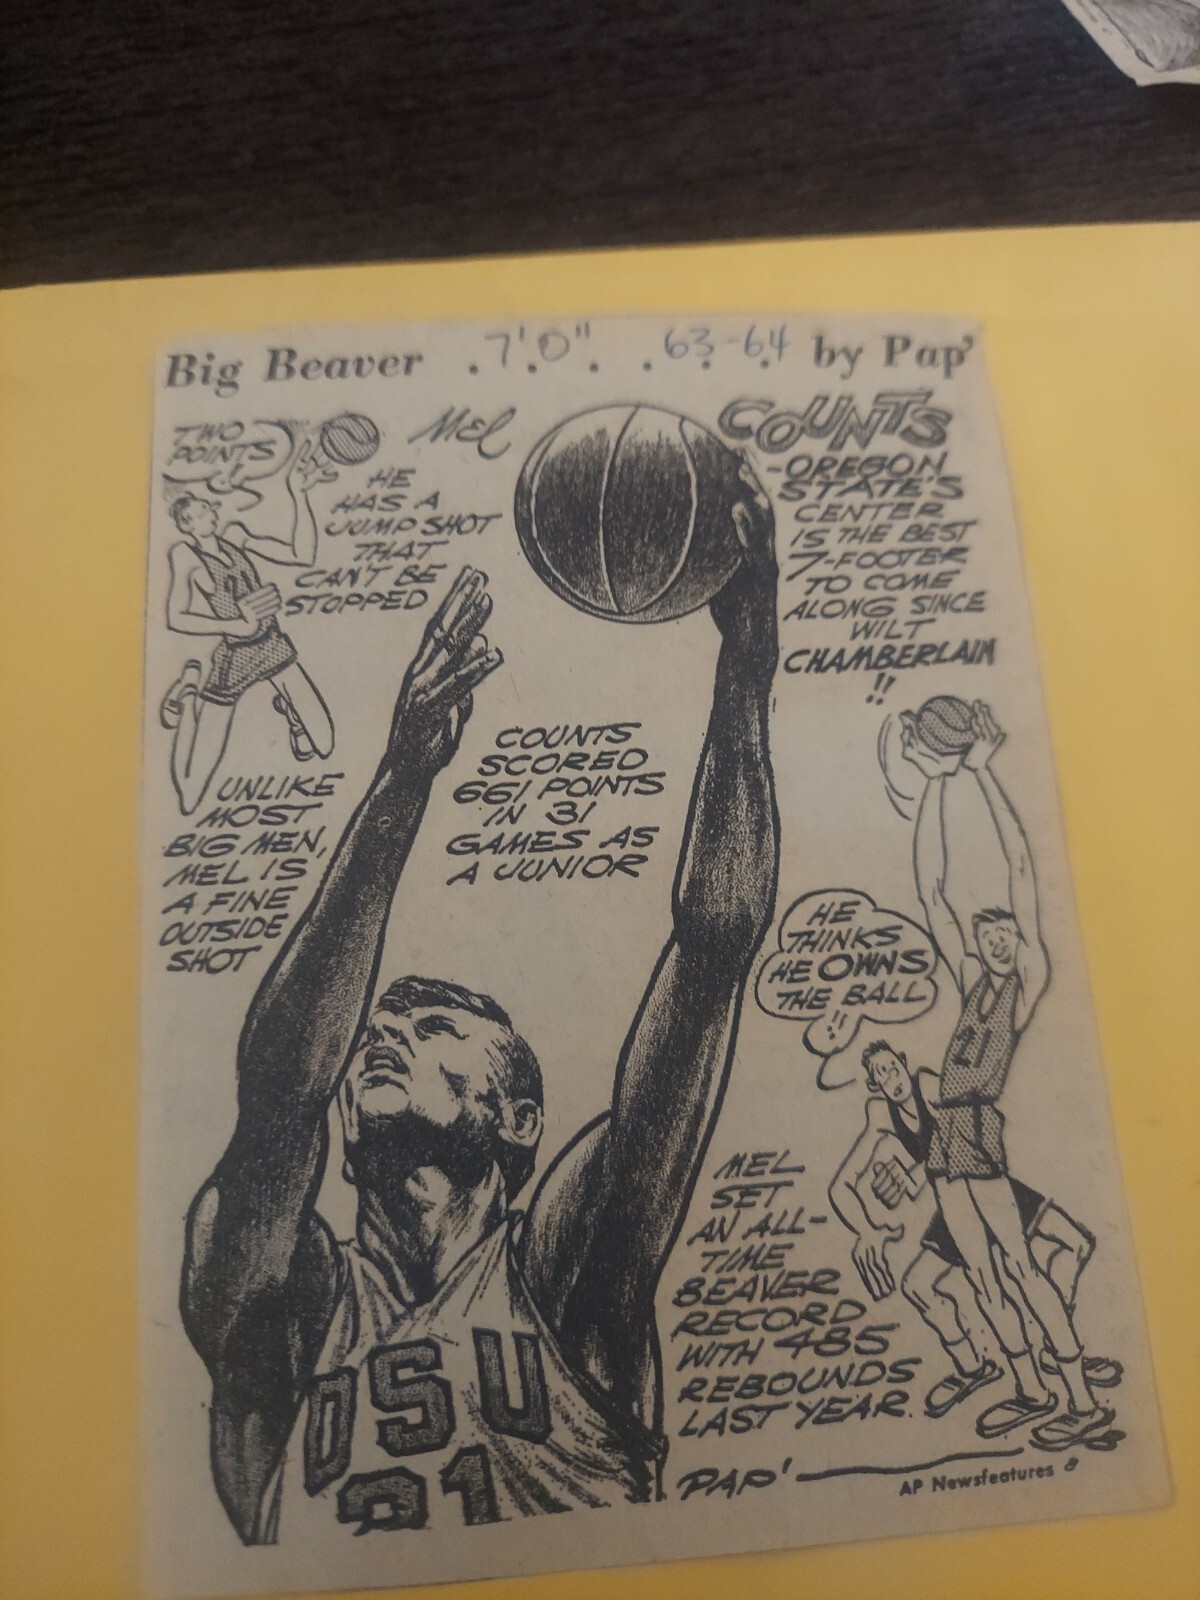 Big Beaver . . . . . . by Pap'
7'0" 63-64
TWO
POINTS
HE
HAS A
JUMP SHOT
THAT
CAN'T BE
STOPPED
MEL
COUNTS
-OREGON
STATE'S
CENTER
IS THE BEST
7-FOOTER
TO COME
ALONG SINCE
WILT
CHAMBERLAIN
!!
UNLIKE
MOST
BIG MEN,
MEL IS
A FINE
OUTSIDE
SHOT
COUNTS
SCORED
661 POINTS
IN 31
GAMES AS
A JUNIOR
HE
THINKS
HE OWNS
THE BALL
!!
MEL
SET
AN ALL-
TIME
BEAVER
RECORD
WITH 485
REBOUNDS
LAST YEAR.
OSU
21
PAP'
AP Newsfeatures